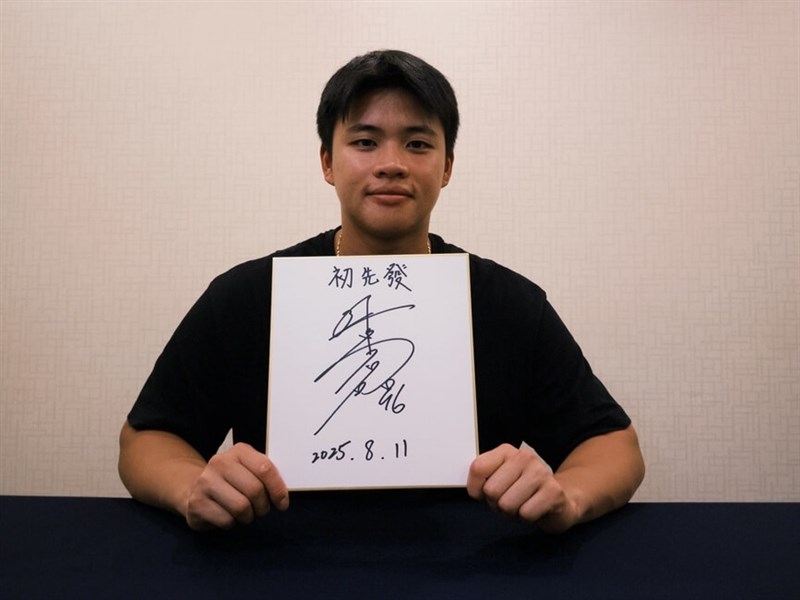 初先發
46
2025.8.11